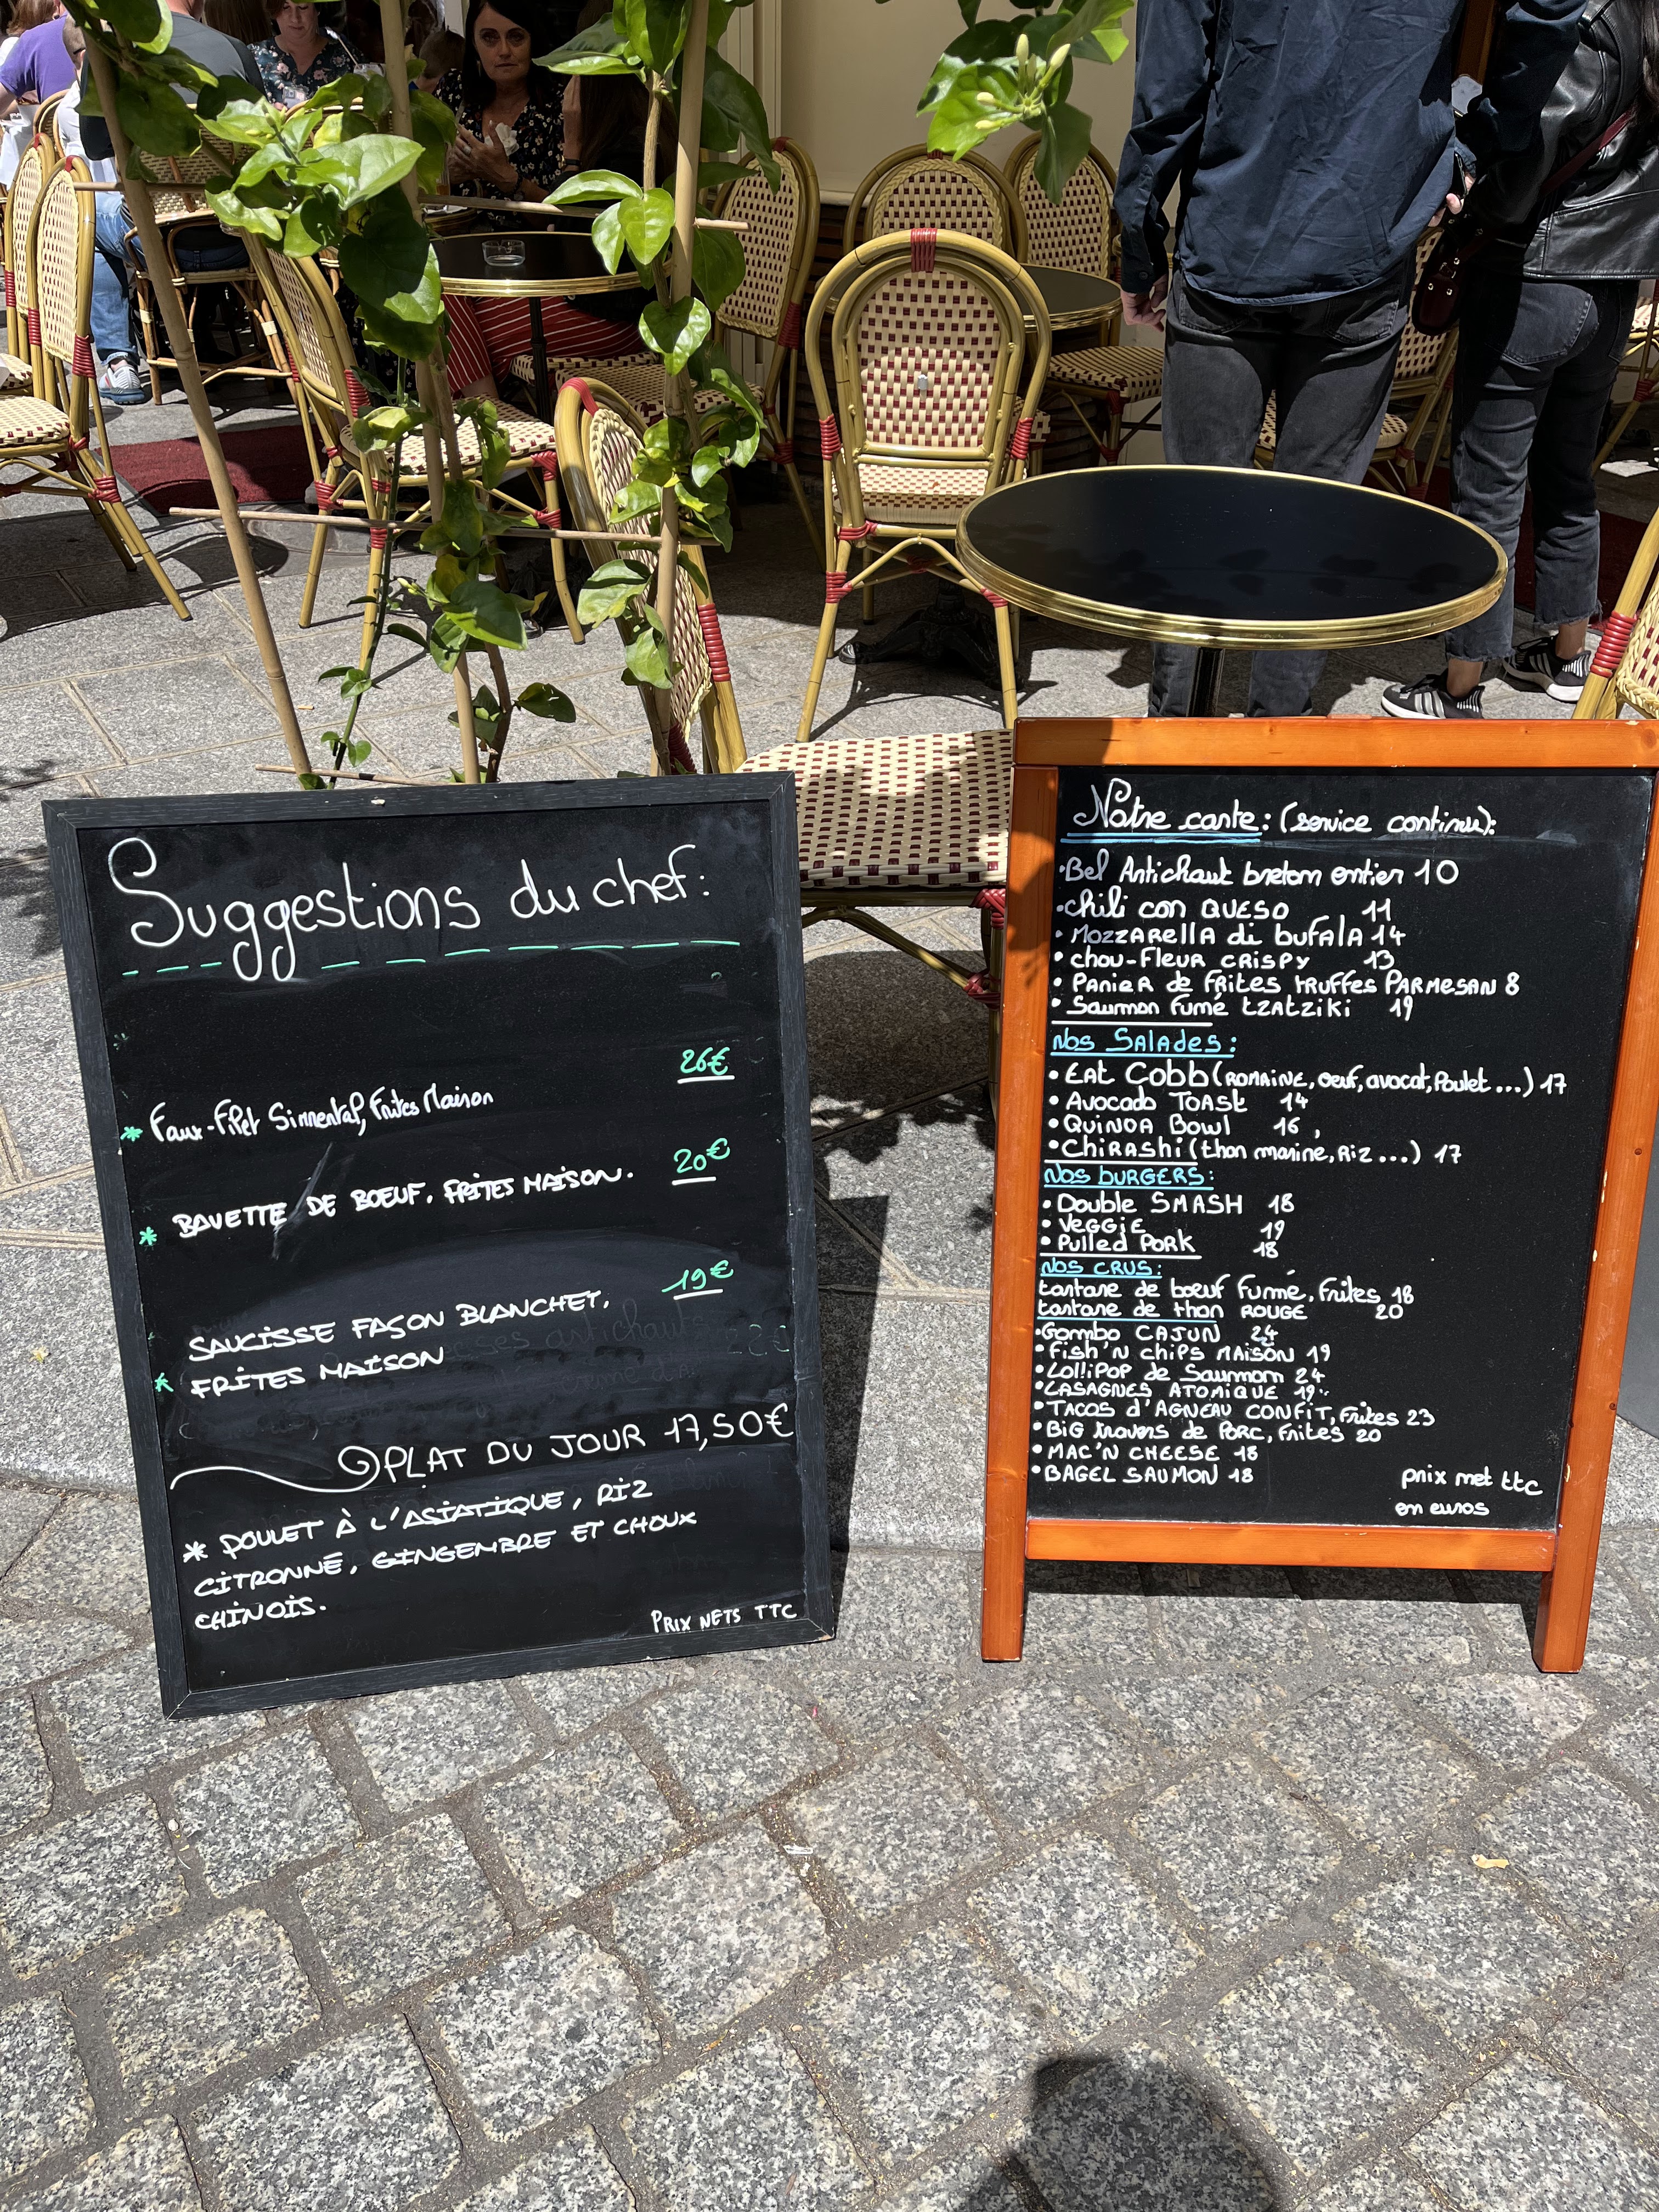 Suggestions du chef:
26€
* Faux-Filet Simmental, Frites Maison
20€
* BAVETTE DE BOEUF, FRITES MAISON.
19€
SAUCISSE FAÇON BLANCHET,
* FRITES MAISON
PLAT DU JOUR 17,50€
* POULET À L'ASIATIQUE, RIZ
CITRONNÉ, GINGEMBRE ET CHOUX
CHINOIS.
PRIX NETS TTC
Notre carte: (service continu):
• Bel Artichaut breton entier 10
• chili con QUESO 11
• MOZZARELLA di bufala 14
• chou-fleur CRISPY 13
• PANIER de FRITES truffes PARMESAN 8
• Saumon Fumé tzatziki 19
Nos Salades:
• EAT Cobb (ROMAINE, oeuf, avocat, Poulet...) 17
• Avocado TOAST 14
• QUINOA Bowl 16
• CHIRASHI (thon mariné, Riz...) 17
Nos BURGERS:
• Double SMASH 18
• VEGGIE 19
• Pulled PORK 18
NOS CRUS:
tartare de boeuf Fumé, Frites 18
tartare de thon ROUGE 20
• Gombo CAJUN 24
• Fish'N chips MAISON 19
• LOLLIPOP de Saumon 24
• LASAGNES ATOMIQUE 19
• TACOS d'AGNEAU CONFIT, Frites 23
• BIG travers de PORC, Frites 20
• MAC'N CHEESE 18
• BAGEL SAUMON 18
prix net ttc
en euros